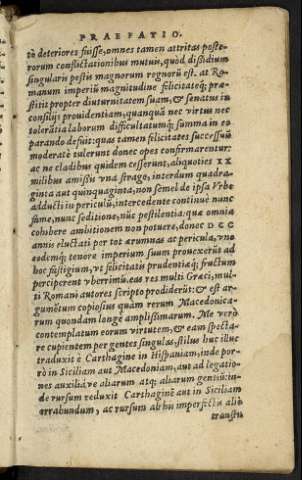 PRAEFATIO.
tò deteriores fuisse, omnes tamen attritas poste-
rorum conflictationibus mutuis, quòd dissidium
singularis pestis magnorum regnorũ est. at Ro-
manum imperiũ magnitudine felicitateq́; præ-
stitit propter diuturnitatem suam, & senatus in
consilijs prouidentiam, quanquã nec virtus nec
tolerãtia laborum difficultatumq́; summa in eo
parando defuit: quas tamen felicitates successuũ
moderatè tulerunt donec opes confirmarentur:
ac ne cladibus quidem cesserunt, aliquoties XX
milibus amissis vna strage, interdum quadra-
ginta aut quinquaginta, non semel de ipsa Vrbe
adducti in periculũ, intercedente continuè nunc
fame, nunc seditione, nũc pestilentia: quæ omnia
cohibere ambitionem non potuere, donec DCC
annis eluctati per tot ærumnas ac pericula, vno
eodemq́; tenore imperium suum prouexerũt ad
hoc fastigium, vt felicitatis prudentiæq́; fructum
perciperent vberrimũ. eas res multi Græci, mul-
ti Romani autores scripto prodiderũt: & est ar-
gumẽtum copiosius quàm rerum Macedonica-
rum quondam longè amplissimarum. Me verò
contemplatum eorum virtutem, & eam specta-
re cupientem per gentes singulas, stilus huc illuc
traduxit è Carthagine in Hispaniam, inde por-
rò in Siciliam aut Macedoniam, aut ad legatio-
nes auxiliáve aliarum atq; aliarum gentiũ: in-
de rursum reduxit Carthaginẽ aut in Siciliam
errabundum, ac rursum ab his imperfectis aliò
transtu